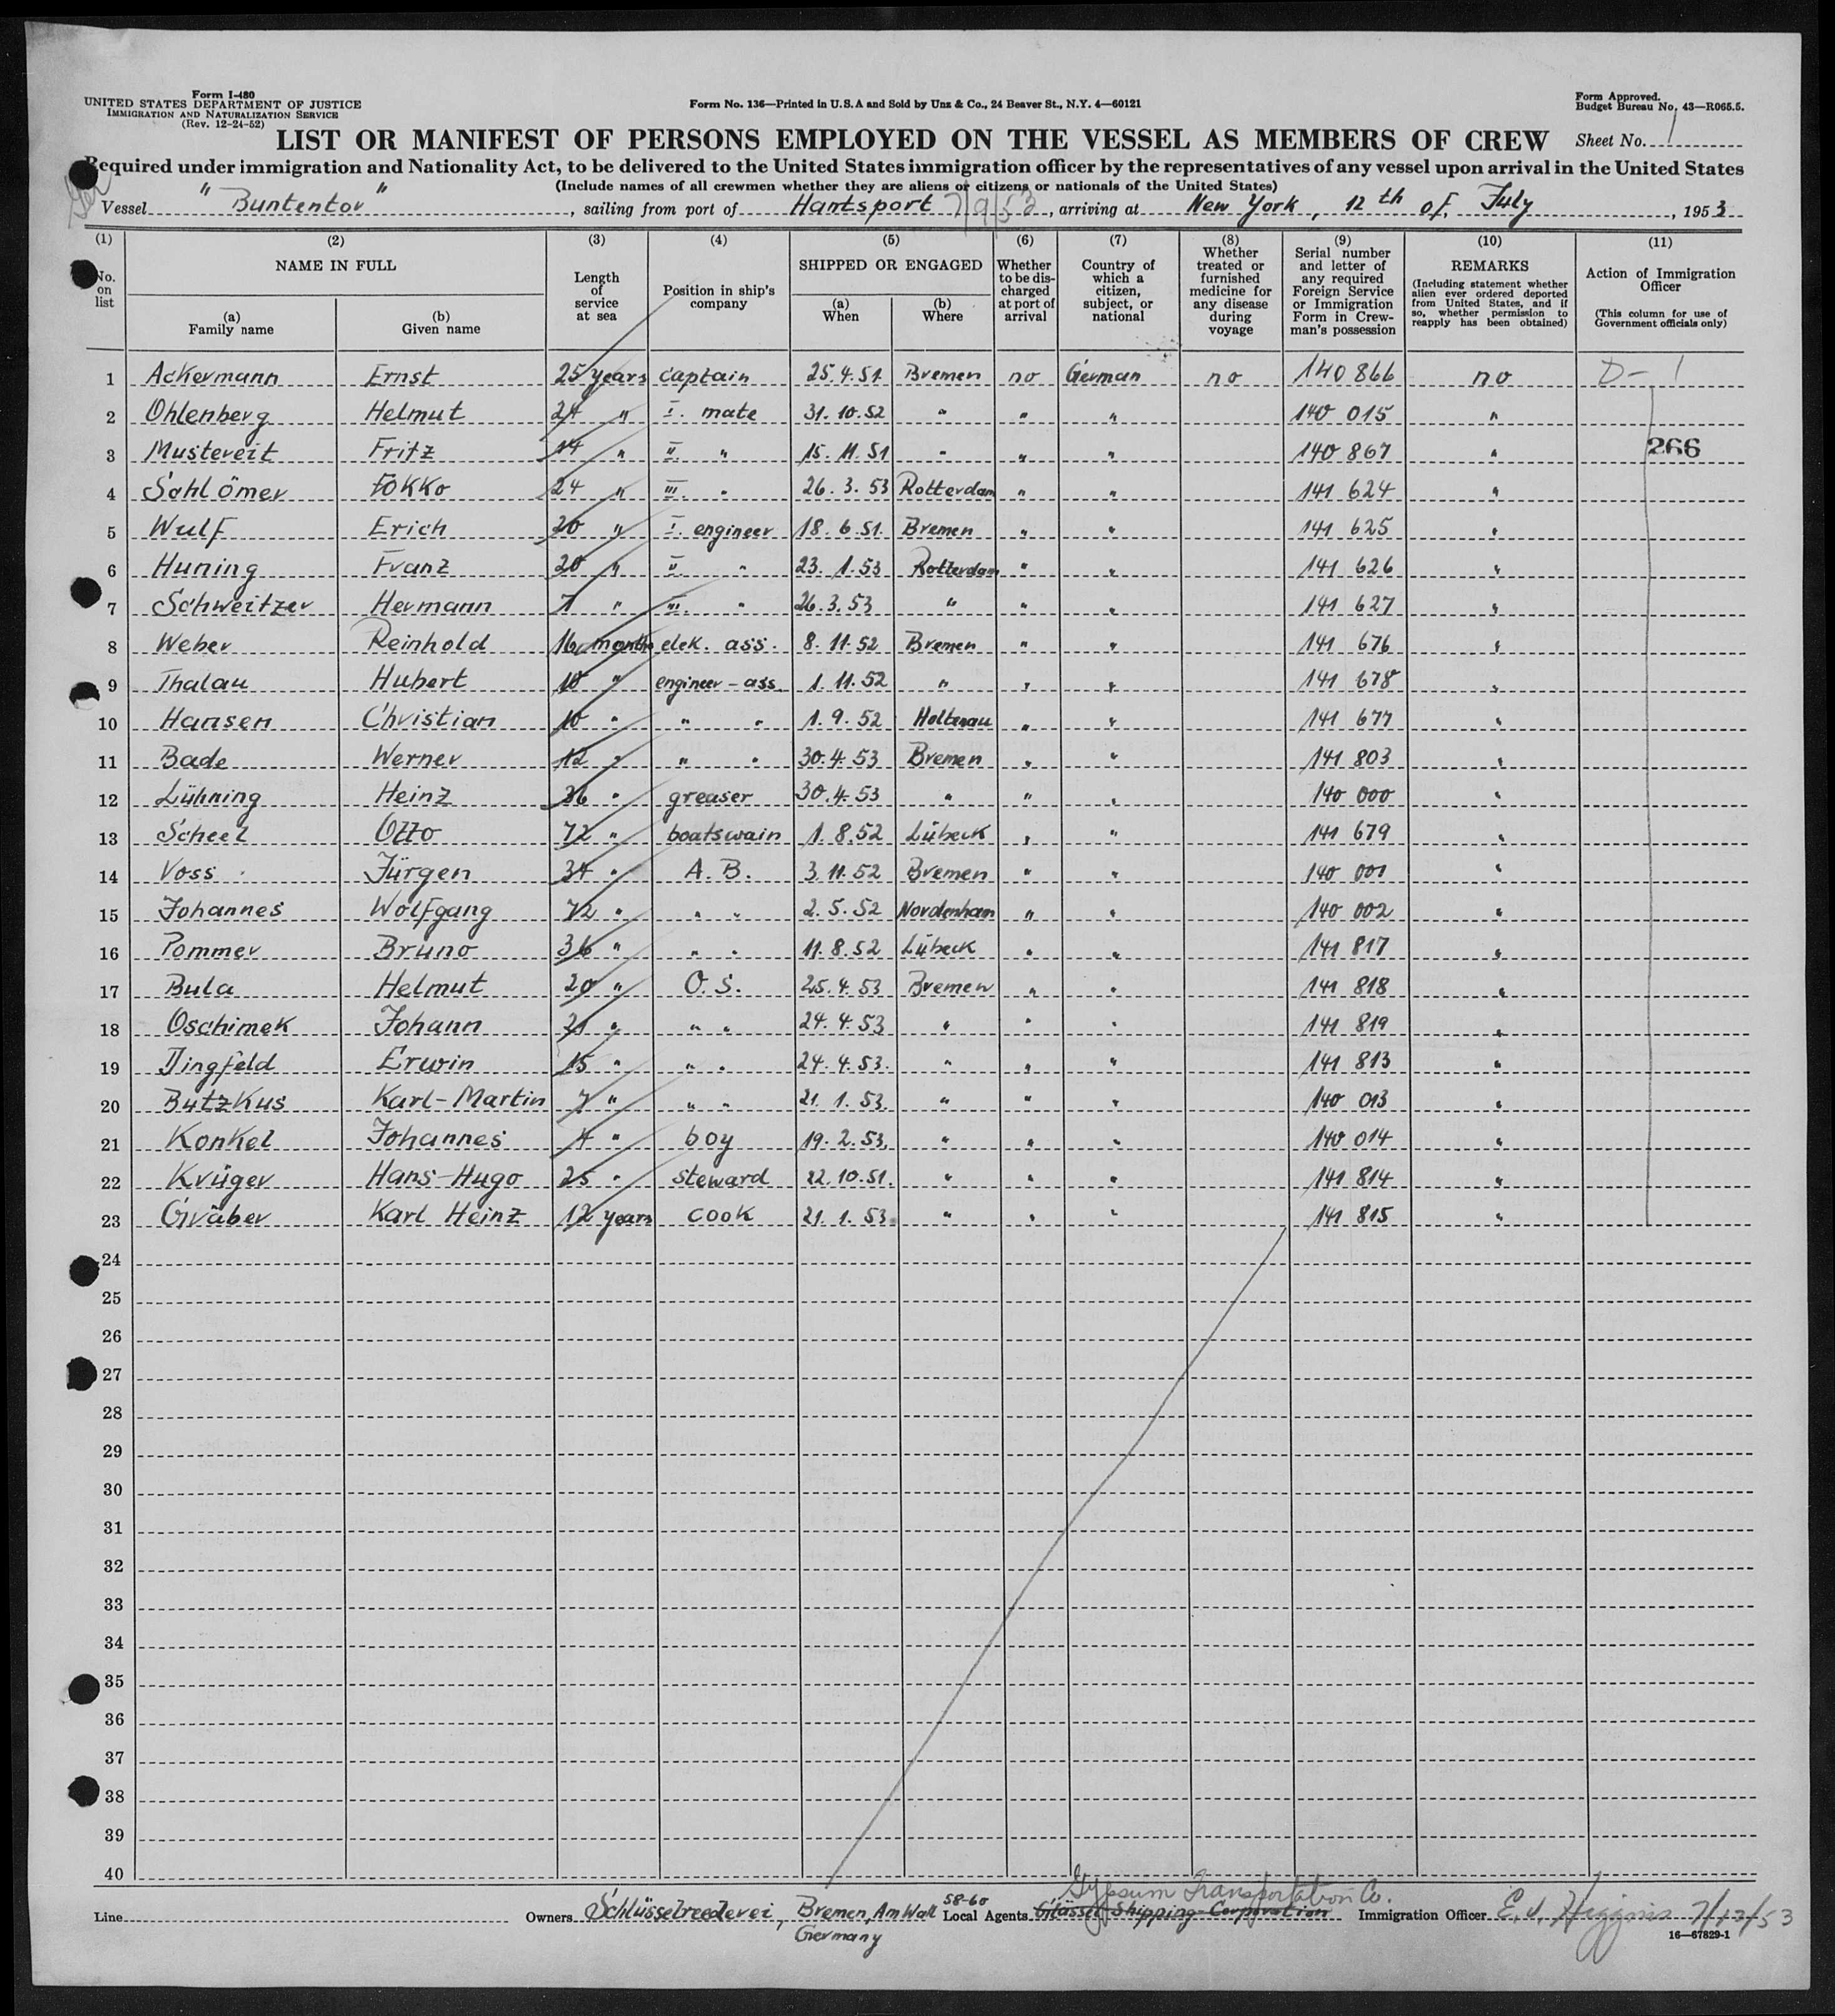 Form I-480
UNITED STATES DEPARTMENT OF JUSTICE
IMMIGRATION AND NATURALIZATION SERVICE
(Rev. 12-24-52)
Form No. 136—Printed in U.S.A and Sold by Unz & Co., 24 Beaver St., N.Y. 4—60121
Form Approved.
Budget Bureau No. 43—R065.5.
LIST OR MANIFEST OF PERSONS EMPLOYED ON THE VESSEL AS MEMBERS OF CREW
Sheet No. 1
Required under immigration and Nationality Act, to be delivered to the United States immigration officer by the representatives of any vessel upon arrival in the United States
(Include names of all crewmen whether they are aliens or citizens or nationals of the United States)
Vessel "Buntentor", sailing from port of Hantsport 7/9/53, arriving at New York, 12th of July, 1953
(1) No. on list
(2) NAME IN FULL
(a) Family name
(b) Given name
(3) Length of service at sea
(4) Position in ship's company
(5) SHIPPED OR ENGAGED
(a) When
(b) Where
(6) Whether to be discharged at port of arrival
(7) Country of which a citizen, subject, or national
(8) Whether treated or furnished medicine for any disease during voyage
(9) Serial number and letter of any required Foreign Service or Immigration Form in Crewman's possession
(10) REMARKS (Including statement whether alien ever ordered deported from United States, and if so, whether permission to reapply has been obtained)
(11) Action of Immigration Officer (This column for use of Government officials only)
1 Ackermann Ernst 25 years captain 25.4.51 Bremen no German no 140 866 no D-1
2 Ohlenberg Helmut 24 " I. mate 31.10.52 " " " 140 015 "
3 Mustereit Fritz 14 " II. " 15.11.51 " " " 140 867 " 266
4 Schlömer Fokko 24 " III. " 26.3.53 Rotterdam " " 141 624 "
5 Wulf Erich 20 " I. engineer 18.6.51 Bremen " " 141 625 "
6 Huning Franz 20 " II. " 23.1.53 Rotterdam " " 141 626 "
7 Schweitzer Hermann 7 " III. " 26.3.53 " " " 141 627 "
8 Weber Reinhold 16 months elek. ass. 8.11.52 Bremen " " 141 676 "
9 Thalau Hubert 10 " engineer-ass. 1.11.52 " " " 141 678 "
10 Hansen Christian 10 " " " 1.9.52 Holtenau " " 141 677 "
11 Bade Werner 12 " " " 30.4.53 Bremen " " 141 803 "
12 Lühning Heinz 36 " greaser 30.4.53 " " " 140 000 "
13 Scheel Otto 72 " boatswain 1.8.52 Lübeck " " 141 679 "
14 Voss Jürgen 34 " A.B. 3.11.52 Bremen " " 140 001 "
15 Johannes Wolfgang 72 " " " 2.5.52 Nordenham " " 140 002 "
16 Pommer Bruno 36 " " " 11.8.52 Lübeck " " 141 817 "
17 Bula Helmut 20 " O.S. 25.4.53 Bremen " " 141 818 "
18 Oschimek Johann 21 " " " 24.4.53 " " " 141 819 "
19 Dingfeld Erwin 15 " " " 24.4.53. " " " 141 813 "
20 Butzkus Karl-Martin 7 " " " 21.1.53. " " " 140 013 "
21 Konkel Johannes 4 " boy 19.2.53. " " " 140 014 "
22 Krüger Hans-Hugo 25 " steward 22.10.51. " " " 141 814 "
23 Gräber Karl Heinz 12 years cook 21.1.53. " " " 141 815 "
24
25
26
27
28
29
30
31
32
33
34
35
36
37
38
39
40
Gypsum Transportation Co.
Line Owners Schlüsselreederei, Bremen, Am Wall 58-60 Local Agents Glässel Shipping-Corporation Immigration Officer E.J. Higgins 7/13/53
Germany
16—67829-1